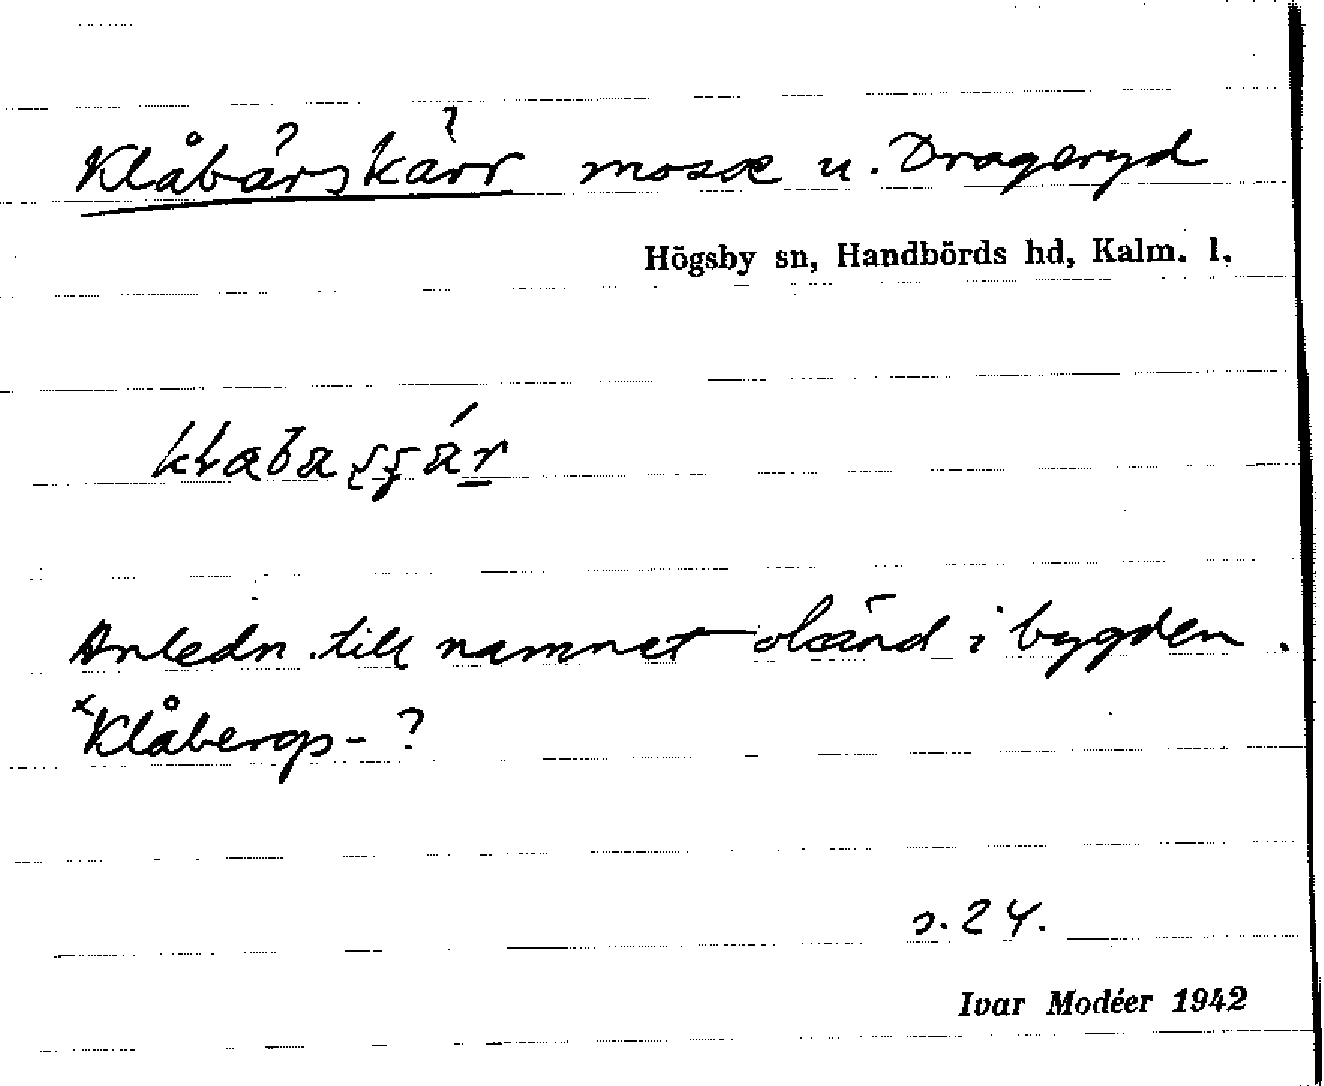 Klåbärskärr mosse u. Drageryd
Högsby sn, Handbörds hd, Kalm. l.
Anledn. till namnet okänd i bygden.
×Klåbergs-?
s. 24.
Ivar Modéer 1942